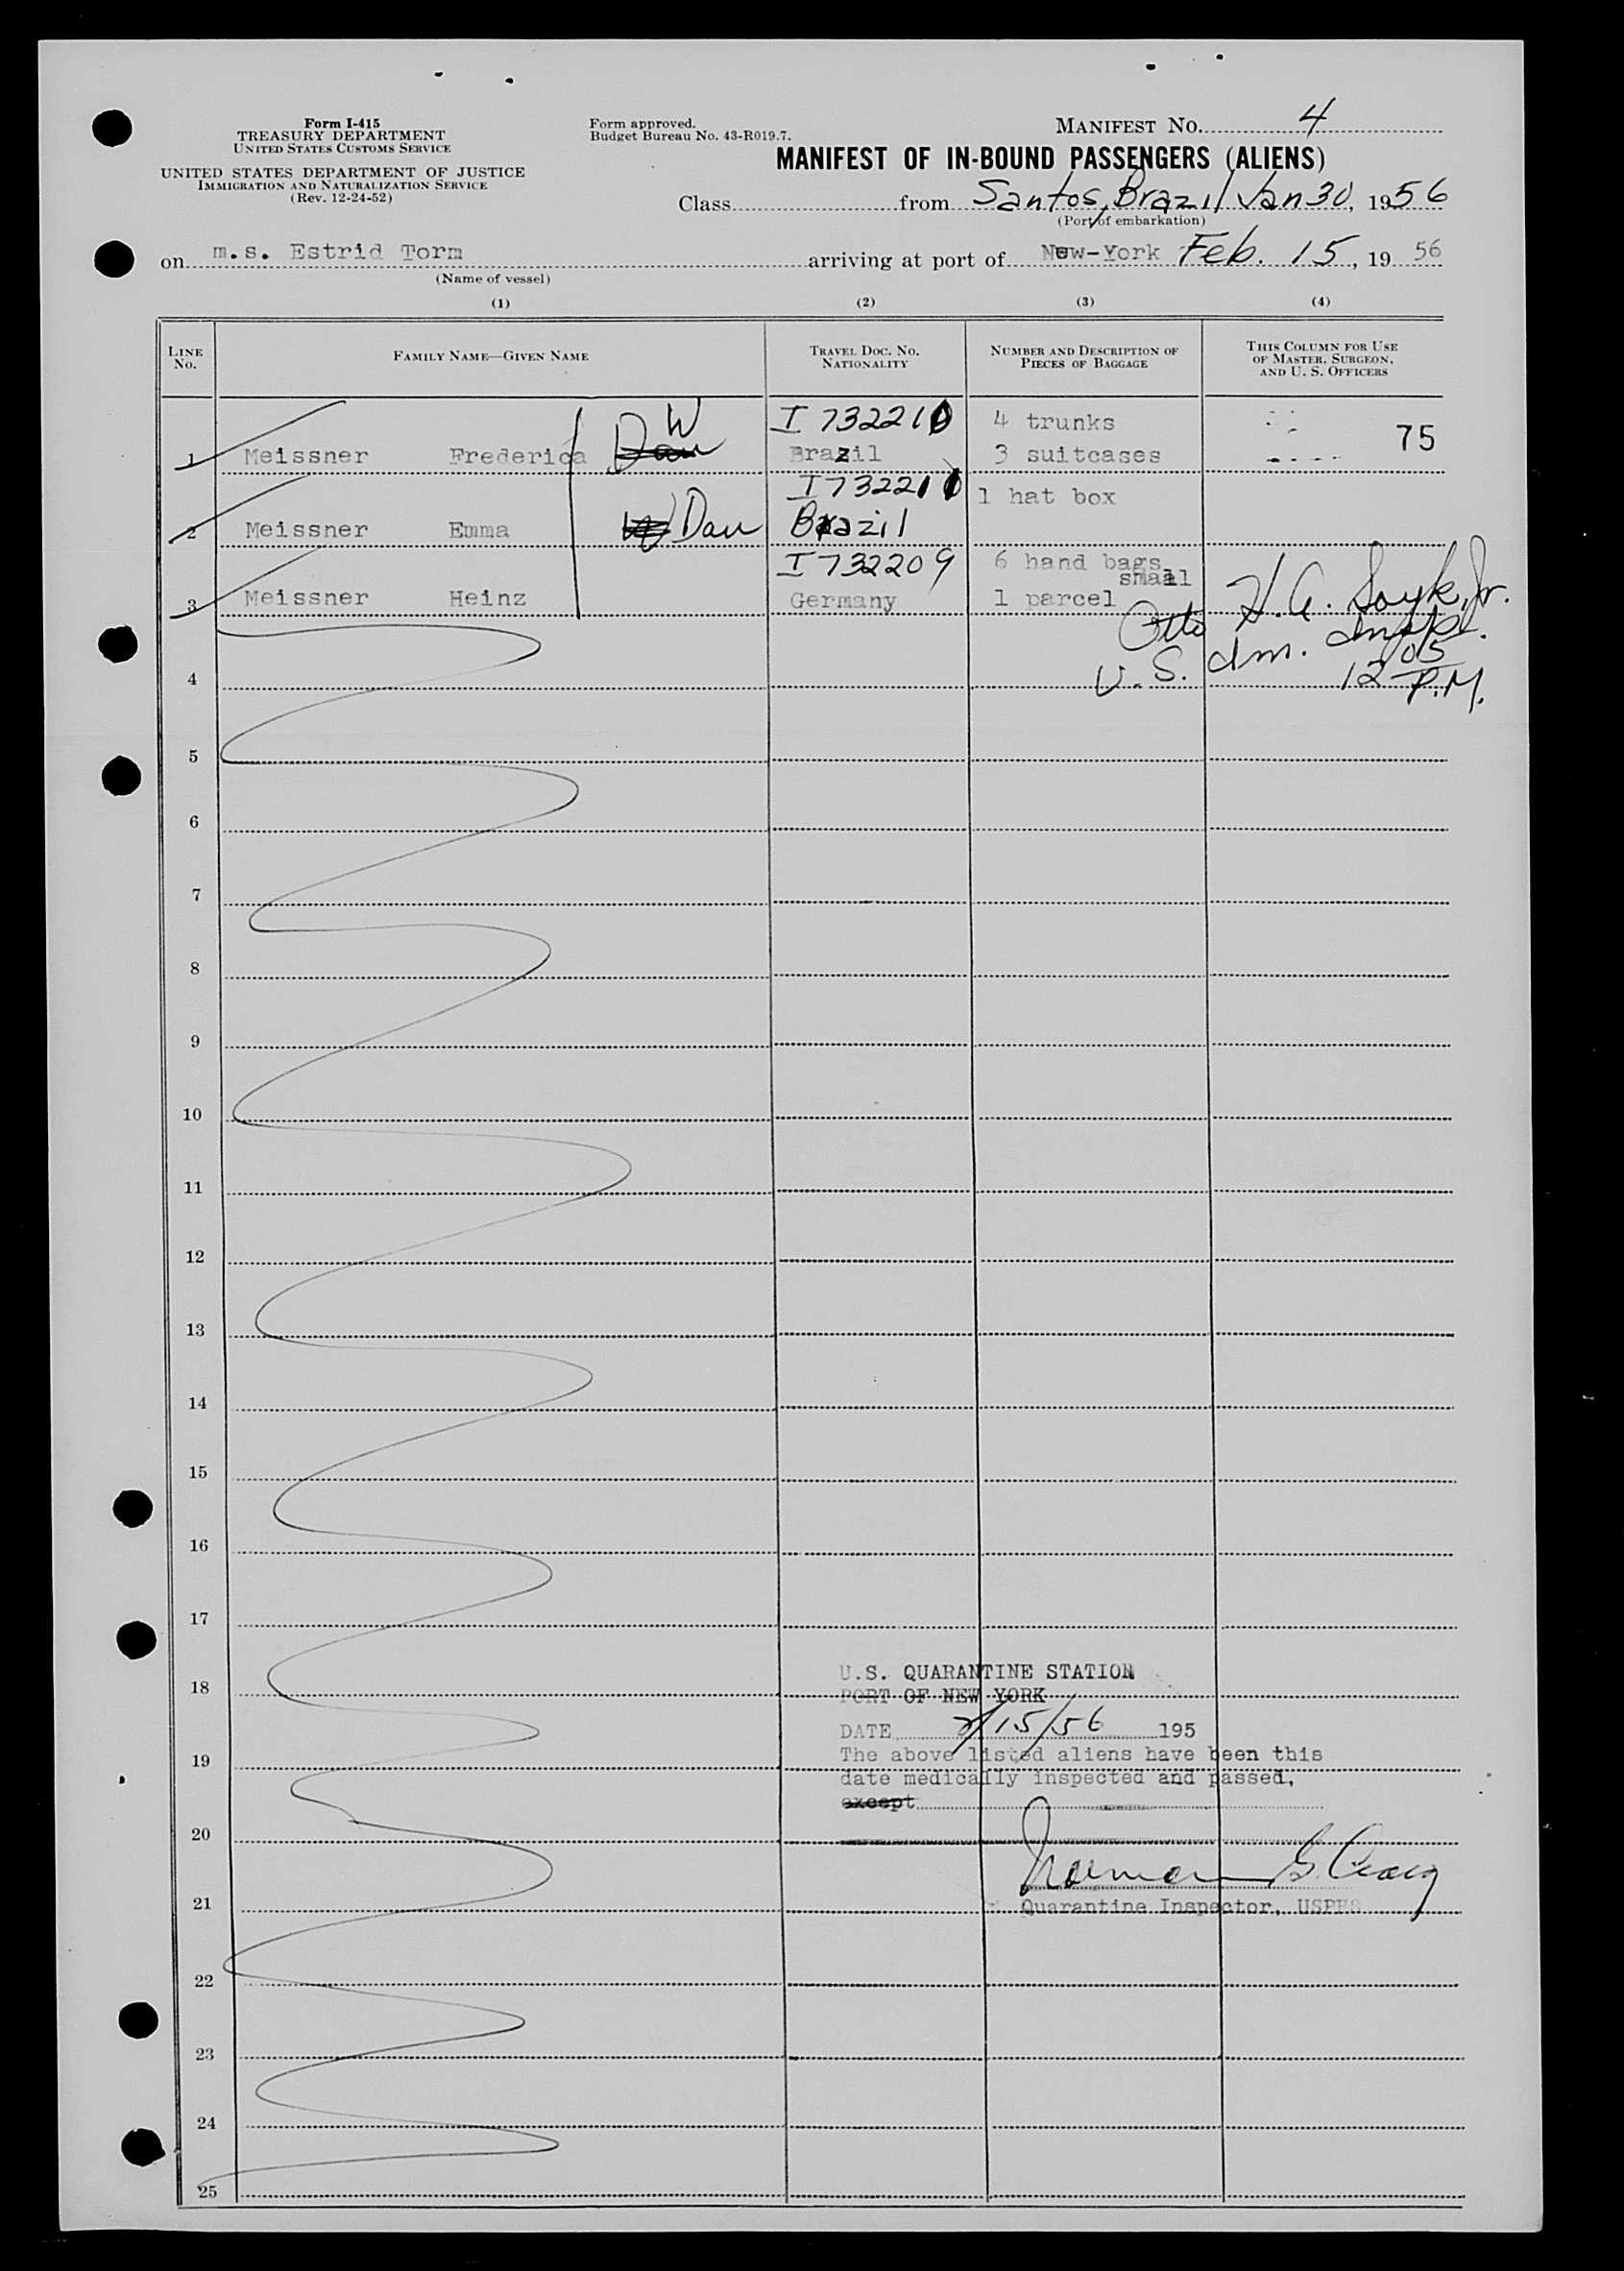 Form I-415
TREASURY DEPARTMENT
UNITED STATES CUSTOMS SERVICE
UNITED STATES DEPARTMENT OF JUSTICE
IMMIGRATION AND NATURALIZATION SERVICE
(Rev. 12-24-52)
Form approved.
Budget Bureau No. 43-R019.7.
MANIFEST NO. 4
MANIFEST OF IN-BOUND PASSENGERS (ALIENS)
Class from Santos, Brazil Jan 30, 1956
(Port of embarkation)
on m.s. Estrid Torm arriving at port of New-York Feb. 15, 19 56
(Name of vessel)
(1) (2) (3) (4)
LINE No. FAMILY NAME—GIVEN NAME TRAVEL DOC. NO. NATIONALITY NUMBER AND DESCRIPTION OF PIECES OF BAGGAGE THIS COLUMN FOR USE OF MASTER, SURGEON, AND U. S. OFFICERS
W I 732210 4 trunks 75
1 Meissner Frederica Dau Brazil 3 suitcases
I732211 1 hat box
2 Meissner Emma W Dau Brazil
I732209 6 hand bags
small
3 Meissner Heinz Germany 1 parcel
Otto H. A. Jr.
U.S. Im. Insp.
12 05 P.M.
4
5
6
7
8
9
10
11
12
13
14
15
16
17
18
19
20
21
22
23
24
25
U.S. QUARANTINE STATION
PORT OF NEW YORK
DATE 2/15/56 195
The above listed aliens have been this
date medically inspected and passed,
except
Norman G. Craig
Quarantine Inspector, USPHS